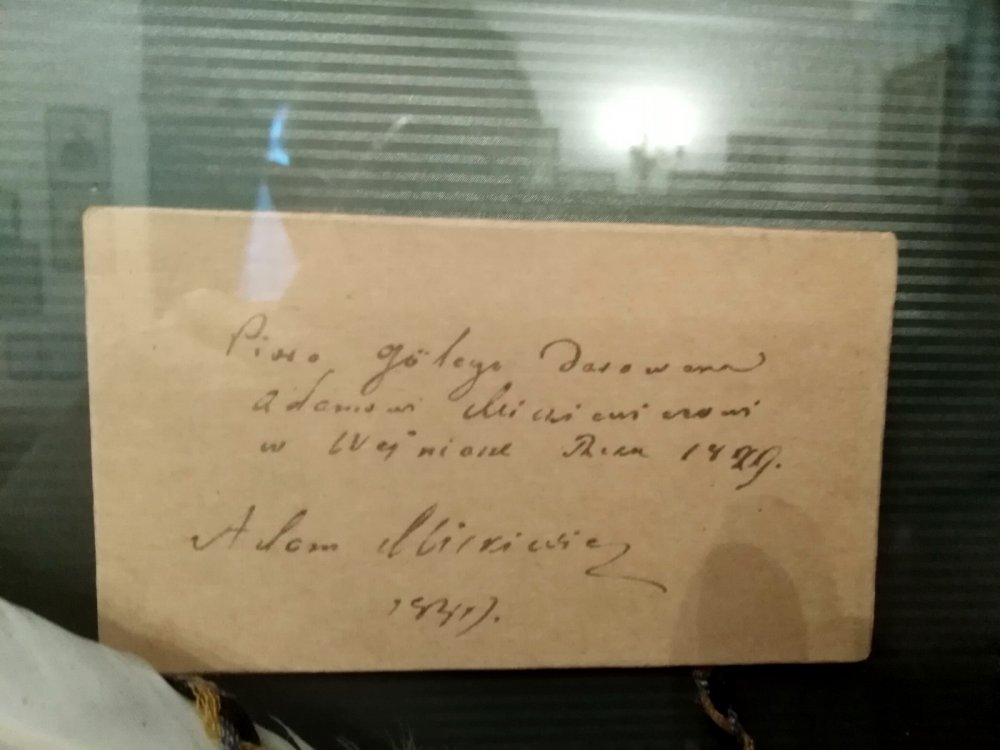 Pioro Götego Darowane
Adamowi Mickiewiczowi
w Wejmarze Roku 1829.
Adam Mickiewicz